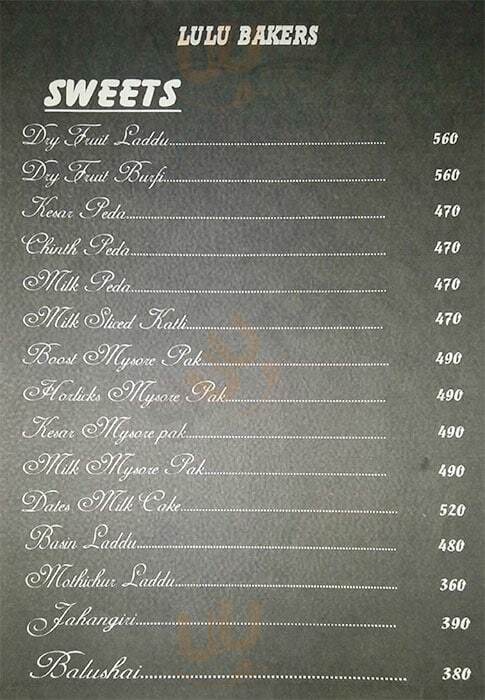 LULU BAKERS
SWEETS
Dry Fruit Laddu 560
Dry Fruit Burfi 560
Kesar Peda 470
Chinth Peda 470
Milk Peda 470
Milk Sliced Katli 470
Boost Mysore Pak 490
Horlicks Mysore Pak 490
Kesar Mysore pak 490
Milk Mysore Pak 490
Dates Milk Cake 520
Basin Laddu 480
Mothichur Laddu 360
Jahangiri 390
Balushai 380